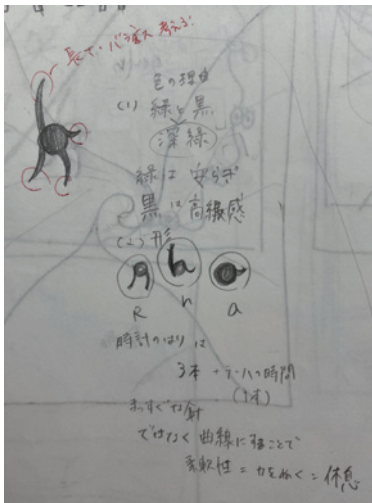 長さ・バランス 考える!
色の理由
(1) 緑と黒
深緑
緑は 安らぎ
黒は高級感
(2) 形
R
n
a
時計のはりは
3本 + ラ・ハの時間
(1本)
まっすぐな針
ではなく 曲線にすることで
柔軟性 = 力をぬく = 休息